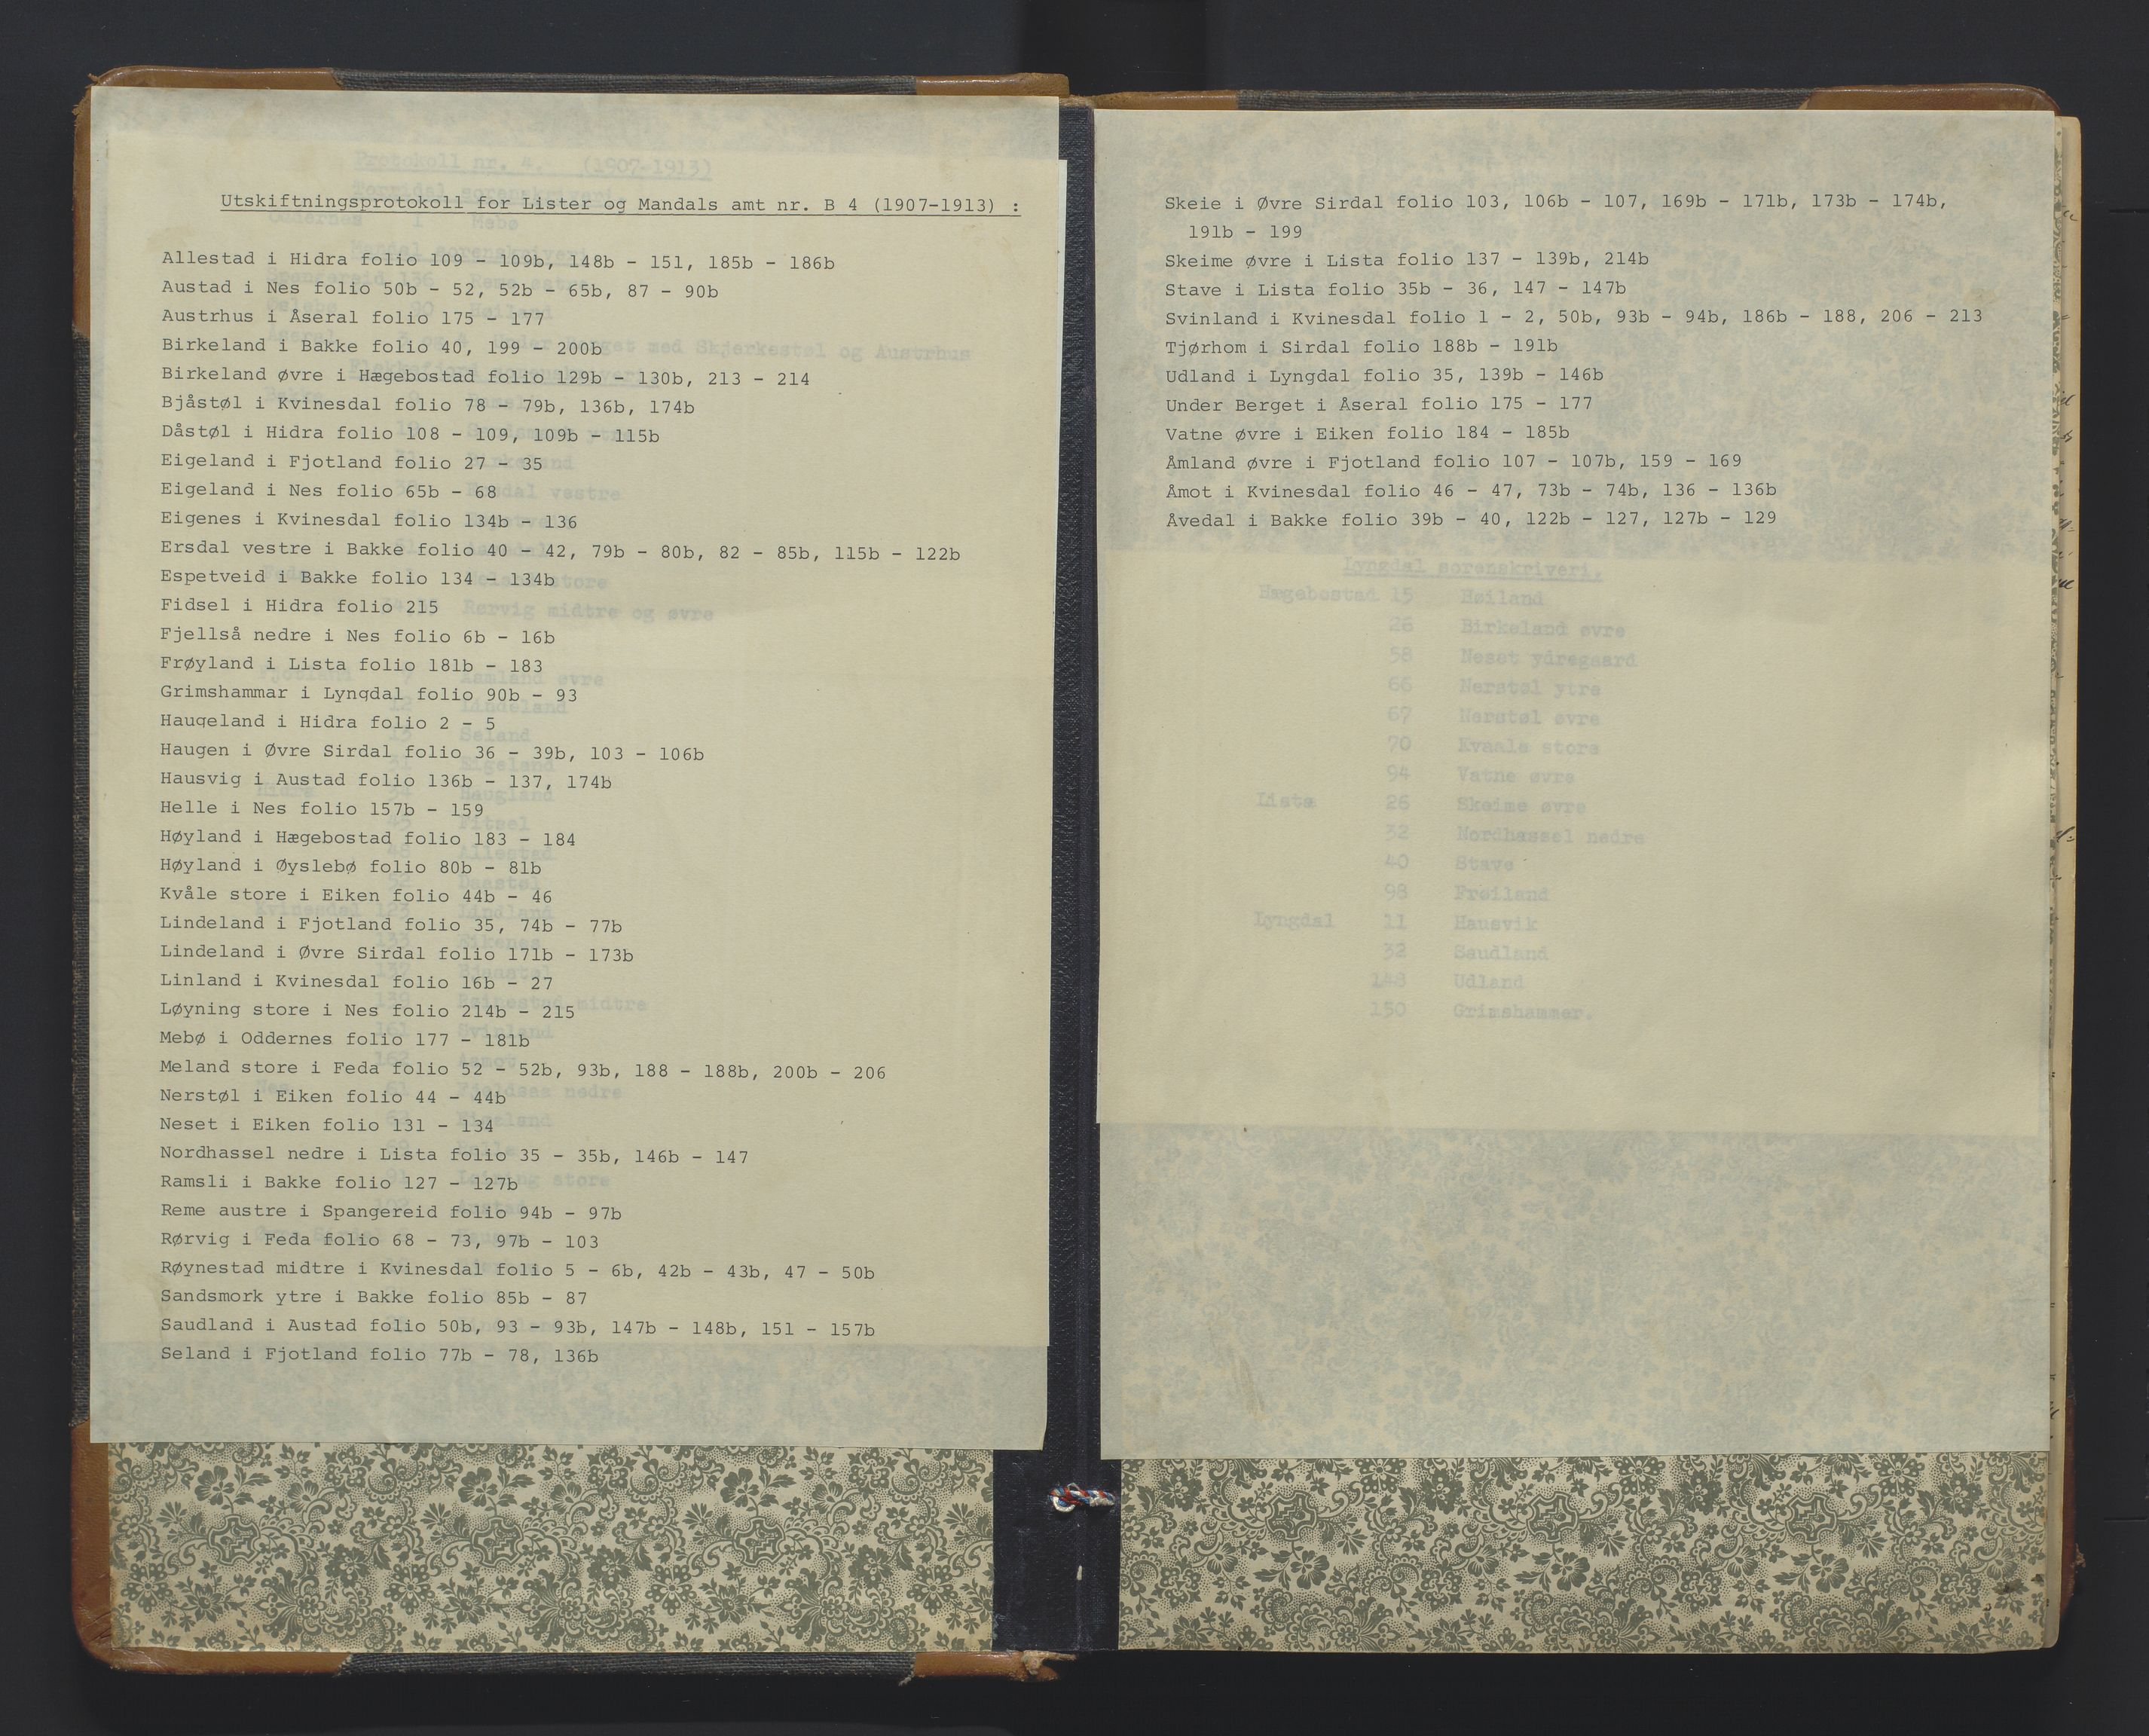 Utskiftningsprotokoll for Lister og Mandals amt nr. B 4 (1907-1913) :
Allestad i Hidra folio 109 - 109b, 148b - 151, 185b - 186b
Austad i Nes folio 50b - 52, 52b - 65b, 87 - 90b
Austrhus i Åseral folio 175 - 177
Birkeland i Bakke folio 40, 199 - 200b
Birkeland øvre i Hægebostad folio 129b - 130b, 213 - 214
Bjåstøl i Kvinesdal folio 78 - 79b, 136b, 174b
Dåstøl i Hidra folio 108 - 109, 109b - 115b
Eigeland i Fjotland folio 27 - 35
Eigeland i Nes folio 65b - 68
Eigenes i Kvinesdal folio 134b - 136
Ersdal vestre i Bakke folio 40 - 42, 79b - 80b, 82 - 85b, 115b - 122b
Espetveid i Bakke folio 134 - 134b
Fidsel i Hidra folio 215
Fjellså nedre i Nes folio 6b - 16b
Frøyland i Lista folio 181b - 183
Grimshammar i Lyngdal folio 90b - 93
Haugeland i Hidra folio 2 - 5
Haugen i Øvre Sirdal folio 36 - 39b, 103 - 106b
Hausvig i Austad folio 136b - 137, 174b
Helle i Nes folio 157b - 159
Høyland i Hægebostad folio 183 - 184
Høyland i Øyslebø folio 80b - 81b
Kvåle store i Eiken folio 44b - 46
Lindeland i Fjotland folio 35, 74b - 77b
Lindeland i Øvre Sirdal folio 171b - 173b
Linland i Kvinesdal folio 16b - 27
Løyning store i Nes folio 214b - 215
Mebø i Oddernes folio 177 - 181b
Meland store i Feda folio 52 - 52b, 93b, 188 - 188b, 200b - 206
Nerstøl i Eiken folio 44 - 44b
Neset i Eiken folio 131 - 134
Nordhassel nedre i Lista folio 35 - 35b, 146b - 147
Ramsli i Bakke folio 127 - 127b
Reme austre i Spangereid folio 94b - 97b
Rørvig i Feda folio 68 - 73, 97b - 103
Røynestad midtre i Kvinesdal folio 5 - 6b, 42b - 43b, 47 - 50b
Sandsmork ytre i Bakke folio 85b - 87
Saudland i Austad folio 50b, 93 - 93b, 147b - 148b, 151 - 157b
Seland i Fjotland folio 77b - 78, 136b
Skeie i Øvre Sirdal folio 103, 106b - 107, 169b - 171b, 173b - 174b,
191b - 199
Skeime øvre i Lista folio 137 - 139b, 214b
Stave i Lista folio 35b - 36, 147 - 147b
Svinland i Kvinesdal folio 1 - 2, 50b, 93b - 94b, 186b - 188, 206 - 213
Tjørhom i Sirdal folio 188b - 191b
Udland i Lyngdal folio 35, 139b - 146b
Under Berget i Åseral folio 175 - 177
Vatne øvre i Eiken folio 184 - 185b
Åmland øvre i Fjotland folio 107 - 107b, 159 - 169
Åmot i Kvinesdal folio 46 - 47, 73b - 74b, 136 - 136b
Åvedal i Bakke folio 39b - 40, 122b - 127, 127b - 129
Lyngdal sorenskriveri.
Hægebostad 15 Høiland
26 Birkeland øvre
58 Neset ydregaard
66 Nerstøl ytre
67 Nerstøl øvre
70 Kvaale store
94 Vatne øvre
Lista 26 Skeime øvre
32 Nordhassel nedre
40 Stave
98 Frøiland
Lyngdal 11 Hausvik
32 Saudland
148 Udland
150 Grimshammer.